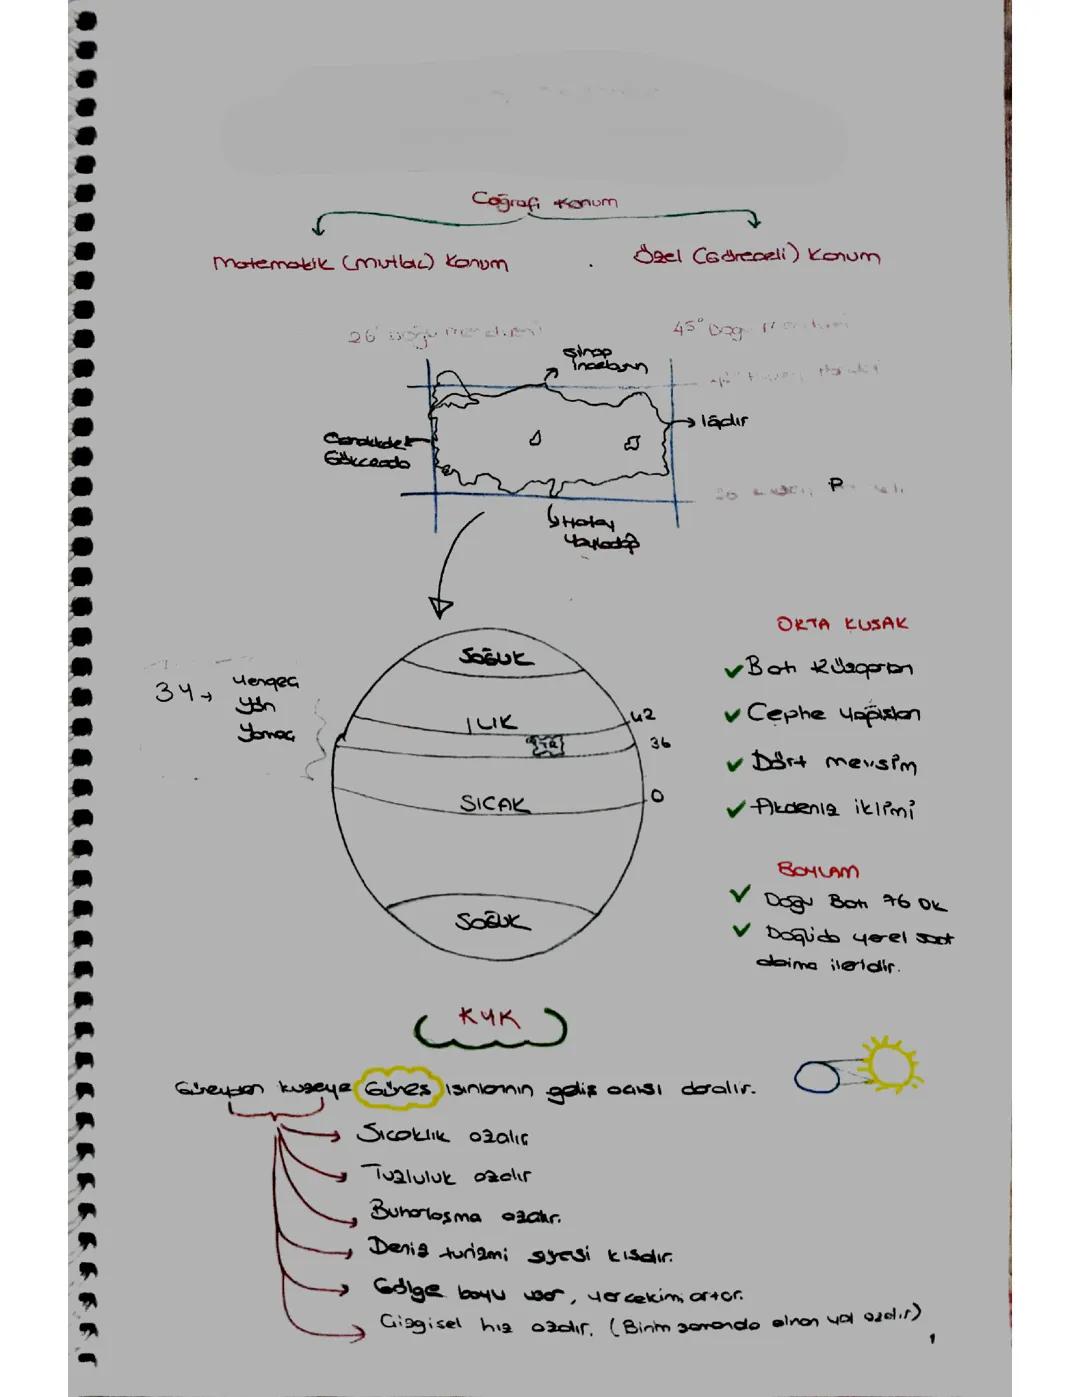 Coğrafi Konum
Matematik (mutlak) Konum
Özel (Göreceli) Konum
26° Doğu Meridyeni
45° Doğu Meridyeni
Sinop
İnceburun
Iğdır
Çanakkale
Gökçeada
P
Hatay
Yayladağı
ORTA KUŞAK
Batı Rüzgarları
Cephe Yağışları
Dört mevsim
Akdeniz iklimi
3Y →
Yengeç
Yön
Yamaç
SOĞUK
ILIK
42
TR
36
SICAK
0
SOĞUK
BOYLAM
Doğu Batı 76 DK
Doğuda yerel saat
daima ileridir.
KYK
Güneyden kuzeye Güneş ışınlarının geliş açısı daralır.
Sıcaklık azalır
Tuzluluk azalır
Buharlaşma azalır.
Deniz turizmi süresi kısalır.
Gölge boyu uzar, yerçekimi artar.
Çizgisel hız azalır. (Birim zamanda alınan yol azalır)
1